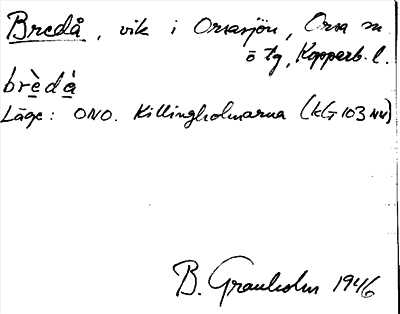 Bredå, vik i Orsasjön, Orsa sn
ö tg, Kopparb. l.
brèdå̀
Läge: ONO. Killingholmarna (kG 103 NV)
B. Granholm 1946